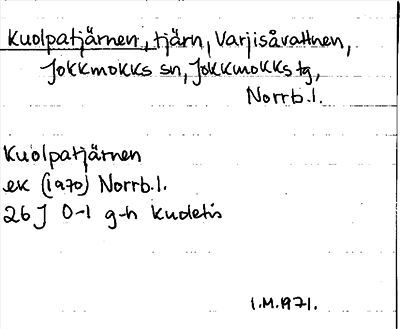 Kuolpatjärnen, tjärn, Varjisåvattnen,
Jokkmokks sn, Jokkmokks tg,
Norrb.l.
Kuolpatjärnen
ek (1970) Norrb.l.
26J 0-1 g-h
I.M.1971.